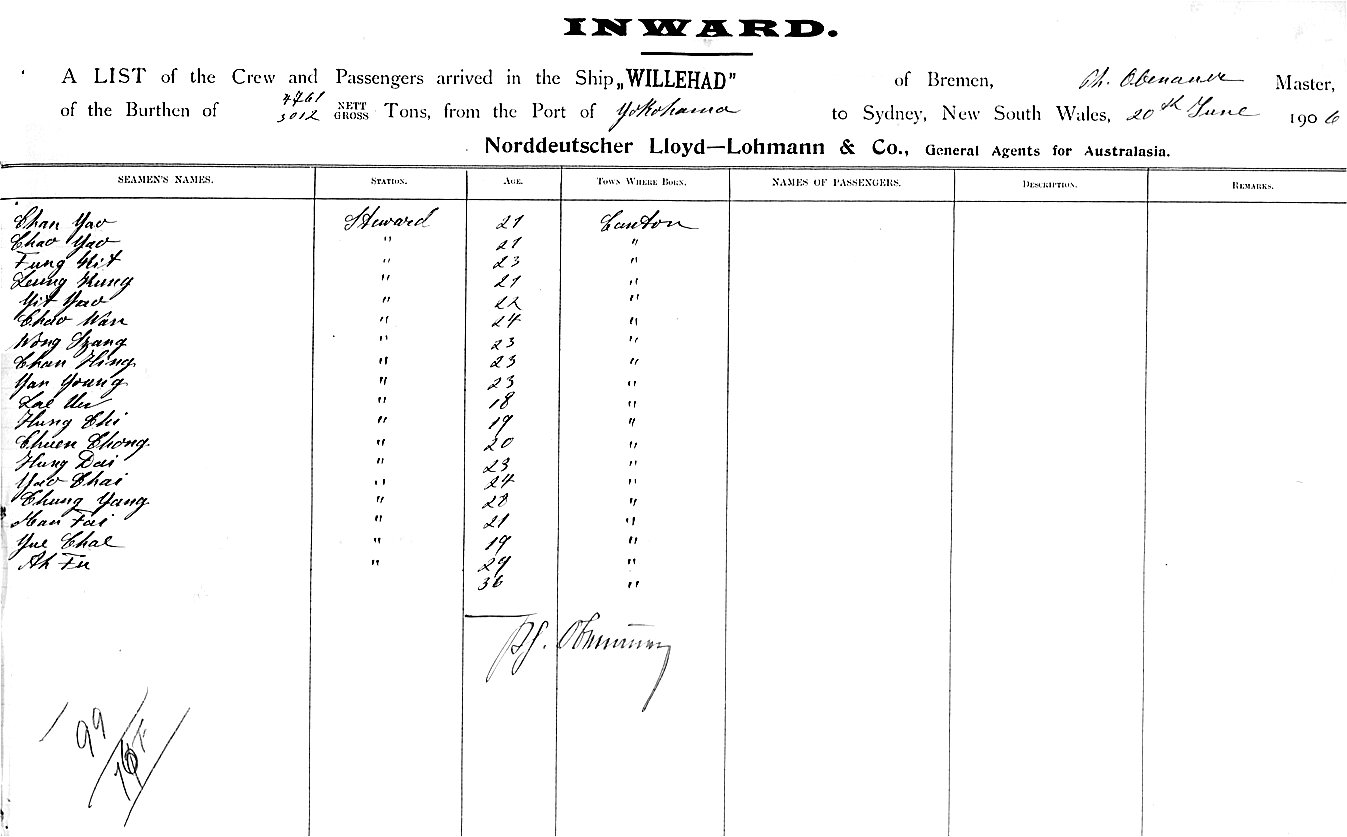 INWARD.
A LIST of the Crew and Passengers arrived in the Ship „WILLEHAD" of Bremen, Ph. Obenauer Master,
of the Burthen of 4761 3012 NETT GROSS Tons, from the Port of Yokohama to Sydney, New South Wales, 20th June 1906
Norddeutscher Lloyd—Lohmann & Co., General Agents for Australasia.
SEAMEN'S NAMES. STATION. AGE. TOWN WHERE BORN. NAMES OF PASSENGERS. DESCRIPTION. REMARKS.
Chan Yao Steward 21 Canton
Chao Yao " 21 "
Fung Hit " 23 "
Leung Hung " 21 "
Yit Yao " 22 "
Chao Wan " 24 "
Wong " 23 "
Chan Hing " 23 "
Yan Young " 23 "
Lae " 18 "
Hung Chi " 19 "
Chuen Chong " 20 "
Hung Dai " 23 "
Yao Chai " 24 "
Chung Yang " 28 "
Man Tai " 21 "
Yue Chae " 19 "
Ah Fu " 29 "
36 "
Ph. Obenauer
99